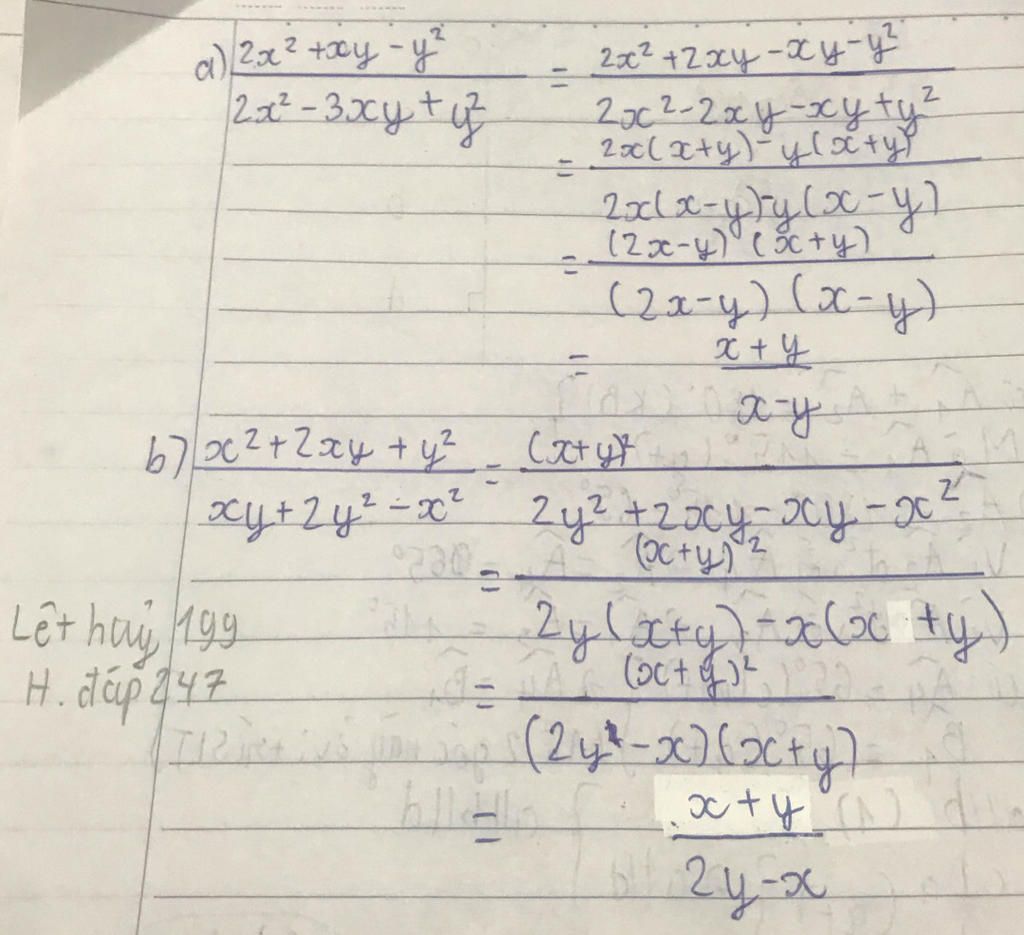 a) (2x² + xy - y²)/(2x² - 3xy + y²) = (2x² + 2xy - xy - y²)/(2x² - 2xy - xy + y²)
= (2x(x+y) - y(x+y))/(2x(x-y) - y(x-y))
= ((2x-y)(x+y))/((2x-y)(x-y))
= (x+y)/(x-y)
b) (x² + 2xy + y²)/(xy + 2y² - x²) = (x+y)²/(2y² + 2xy - xy - x²)
= (x+y)²/(2y(x+y) - x(x+y))
Lê + hay 199
H. đáp 247
= (x+y)²/((2y-x)(x+y))
= (x+y)/(2y-x)